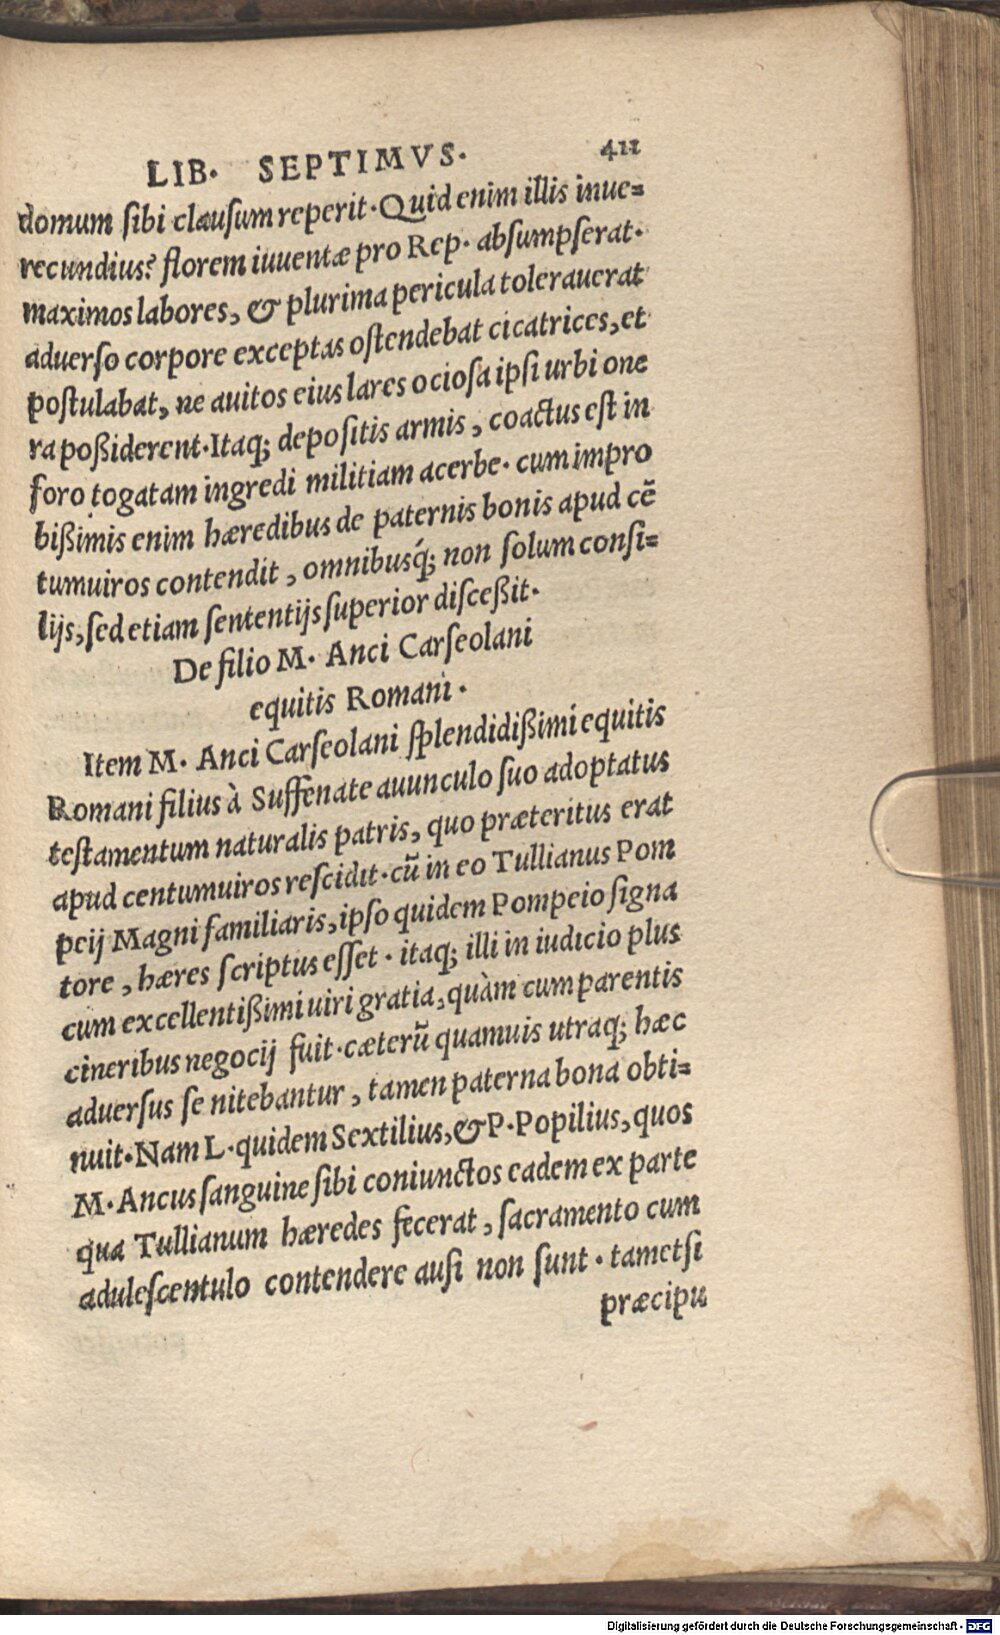 LIB. SEPTIMVS. 411
domum sibi clausum reperit. Quid enim illis inue=
recundius? florem iuuentæ pro Rep. absumpserat.
maximos labores, & plurima pericula tolerauerat
aduerso corpore exceptas ostendebat cicatrices, et
postulabat, ne auitos eius lares ociosa ipsi urbi one
ra poßiderent. Itaq; depositis armis, coactus est in
foro togatam ingredi militiam acerbe. cum impro
bißimis enim hæredibus de paternis bonis apud cē
tumuiros contendit, omnibusq́; non solum consi=
lijs, sed etiam sententijs superior disceßit.
De filio M. Anci Carseolani
equitis Romani.
Item M. Anci Carseolani splendidißimi equitis
Romani filius à Suffenate auunculo suo adoptatus
testamentum naturalis patris, quo præteritus erat
apud centumuiros rescidit. cū in eo Tullianus Pom
peij Magni familiaris, ipso quidem Pompeio signa
tore, hæres scriptus esset. itaq; illi in iudicio plus
cum excellentißimi uiri gratia, quàm cum parentis
cineribus negocij fuit. cæterū quamuis utraq; hæc
aduersus se nitebantur, tamen paterna bona obti=
nuit. Nam L. quidem Sextilius, & P. Popilius, quos
M. Ancus sanguine sibi coniunctos eadem ex parte
qua Tullianum hæredes fecerat, sacramento cum
adulescentulo contendere ausi non sunt. tametsi
præcipu
Digitalisierung gefördert durch die Deutsche Forschungsgemeinschaft - DFG